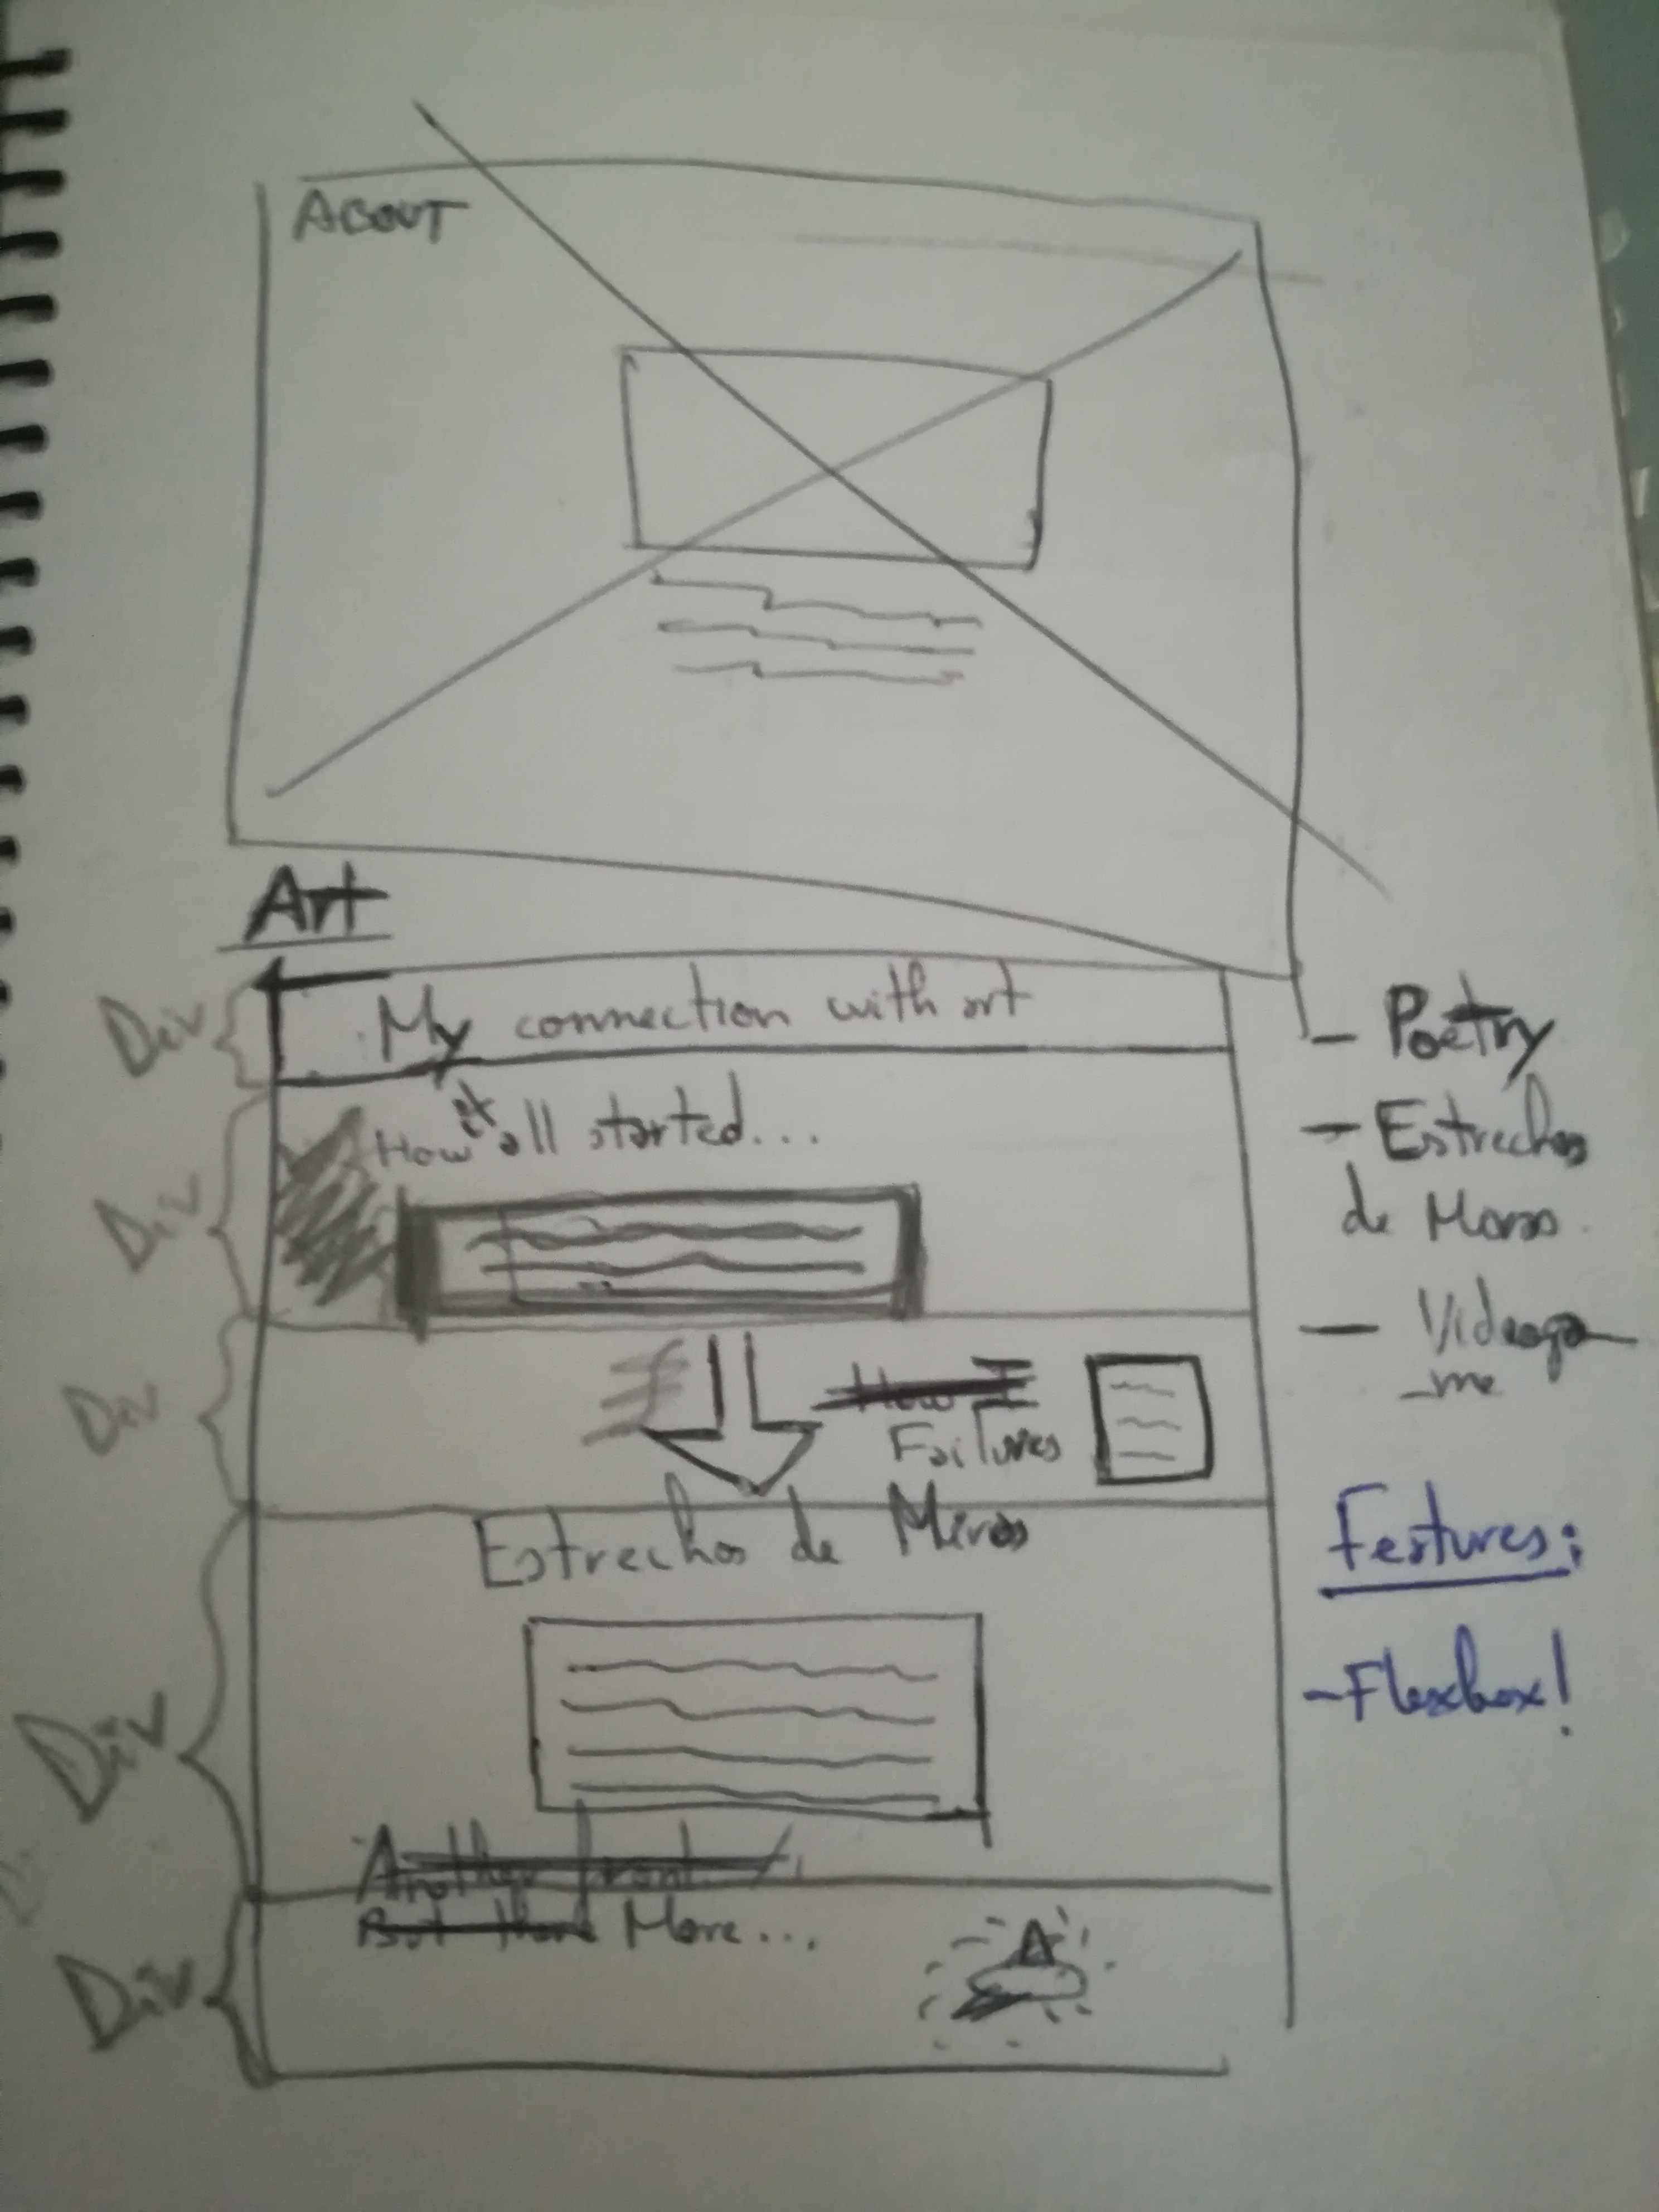 ABOUT
Art
Div
My connection with art
Div
How it all started...
Div
How I
Failures
Div
Estrechos de Miras
Another
But there More...
Div
A
- Poetry
- Estrechos
de Moras
- Videoga
-me
Features:
-Flexbox!